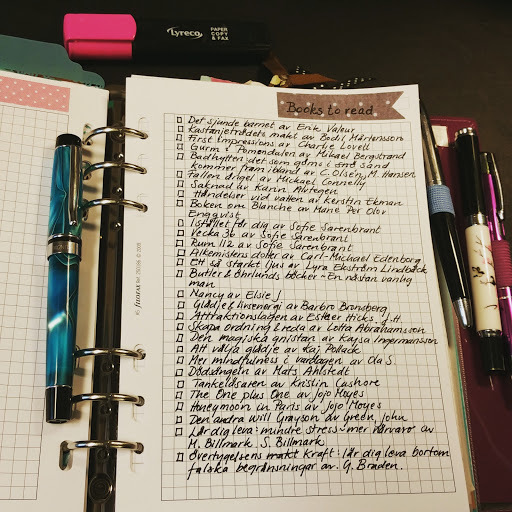 Lyreco
PAPER
COPY
& FAX
Books to read
Det sjunde barnet av Erik Valeur
Kastanjeträdets makt av Bodil Mårtensson
First Impressions av Charlie Lovell
Gurm i Pomonadalen av Mikael Bergstrand
Badhytten det som göms i snö sånd
kommer fram ibland av C. Olsen, M. Hansen
Fallen ängel av Michael Connelly
Saknad av Karin Alvtegen
Händelser vid vatten av Kerstin Ekman
Boken om Blanche av Marie Per Olov
Enqvist
Istället för dig av Sofie Sarenbrant
Vecka 36 av Sofie Sarenbrant
Rum 112 av Sofie Sarenbrant
Alkemistens dotter av Carl-Michael Edenborg
Ett så starkt ljus av Lyra Ekström Lindbäck
Butler & Öhrlunds böcker - En nästan vanlig
man
Nancy av Elsie J.
Glädje & livsenergi av Barbro Bronsberg
Attraktionslagen av Esther Hicks, J.H.
Skapa ordning & reda av Lotta Abrahamsson
Den magiska gnistan av Kajsa Ingemarsson
Att välja glädje av Kaj Pollack
Mer mindfulness i vardagen av Ola S.
Dödsängeln av Mats Ahlstedt
Tankeläsaren av Kristin Cashore
The One plus One av Jojo Moyes
Honeymoon in Paris av Jojo Moyes
Den andra Will Grayson av Green, John
Lär dig leva: mindre stress - mer närvaro av
M. Billmark. S. Billmark
Övertygelsens makt Kraft: lär dig leva bortom
falska begränsningar av. G. Braden.